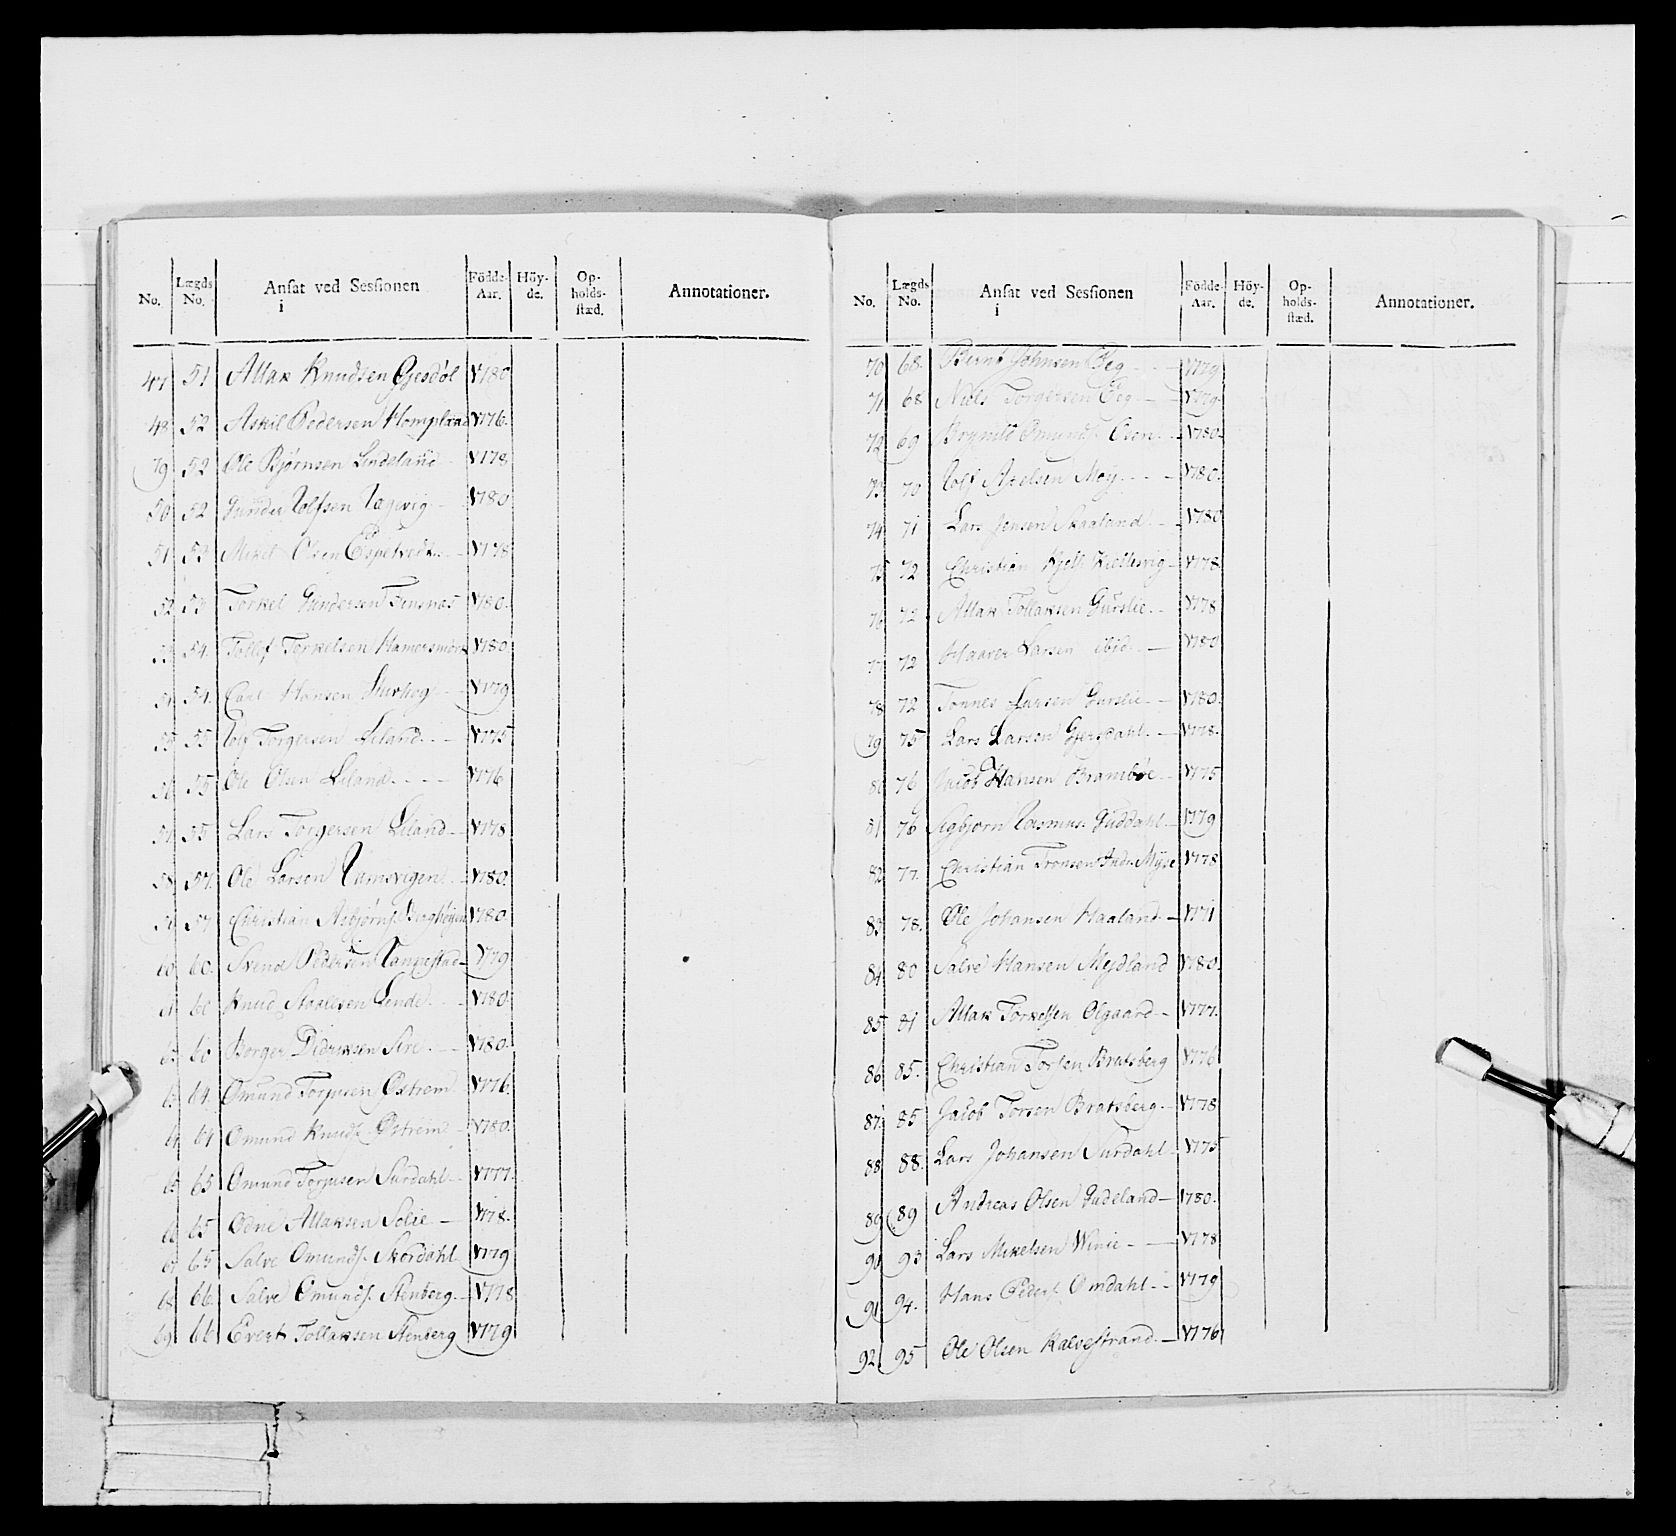 No. Lægds No. Ansat ved Sessionen i Födde-Aar. Höy-de. Op-holds-stæd. Annotationer.
47 51 Allak Knudsen Gjesdøl 1780
48 52 Askil Pedersen Hompland 1776.
79 52 Ole Bjørnsen Lindeland 1778
50 52 Gunder Rolfsen 1780
51 53 Mikel Olsen Espetvedt 1778
52 53 Torkel Gundersen Finsnæs 1780.
53 54. Tollef Torkelsen Hamersmark 1780
54 54. Carl Hansen 1779
55 55 Rolf Torgersen Liland 1775
56 55 Ole Olsen Liland 1776
57 55 Lars Torgersen Liland 1778
58 57. Ole Larsen Ramsvigen 1780.
57 Christian Asbjørns. 1780
60 60. Svend Pedersen 1779
61 60 Knud Staalesen Linde 1780
60 Borger Didriksen Sire 1780.
63 64. Omund Torjusen Østrem 1776.
64 64 Omund Knuds. Østrem 1780.
65 65 Omund Torjusen Surdahl 1777.
66 65 Odne Allaksen Solie 1778.
67 65 Salve Omunds. Skordahl 1779
68 66. Salve Omunds. Stenberg 1778
69 66 Evert Tollaksen Stenberg 1779
No. Lægds No. Ansat ved Sessionen i Födde-Aar. Höy-de. Op-holds-stæd. Annotationer.
70 68. Bernt Johnsen Eeg 1779
71 68 Niels Torgersen Eeg 1779.
72 69 Brynild Omunds. Osen 1780.
73 70 Rolf Axelsen Moy 1780.
74 71 Lars Jensen Skaaland 1780
75 72 Christian Kiellewig 1778
76 72 Allak Tollaksen Gurslie 1778
77 72 Haaver Larsen ibid. 1780
78 72 Tønnes Larsen Gurslie 1780.
79 75 Lars Larsen Gjersdahl 1778.
80 76 Jacob Hansen Brambøe 1775
81 76 Sigbjørn Rasmus. Guddahl 1779
82 77. Christian Tronsen Indr. Myse 1778
83 78. Ole Johansen Haaland 1771
84 80 Salve Hansen Mejdland 1780.
85 81 Allak Torkelsen Olgaard 1777.
86 85. Christian Torsen Bratsberg 1776
87 85 Jacob Torsen Bratsberg 1778
88 88. Lars Johansen Surdahl 1775
89 89 Andreas Olsen Gadeland 1780.
90 93 Lars Mikelsen Winie 1778
91 94. Hans Peders. Omdahl 1779
92 95 Ole Olsen Kalvestrand 1776